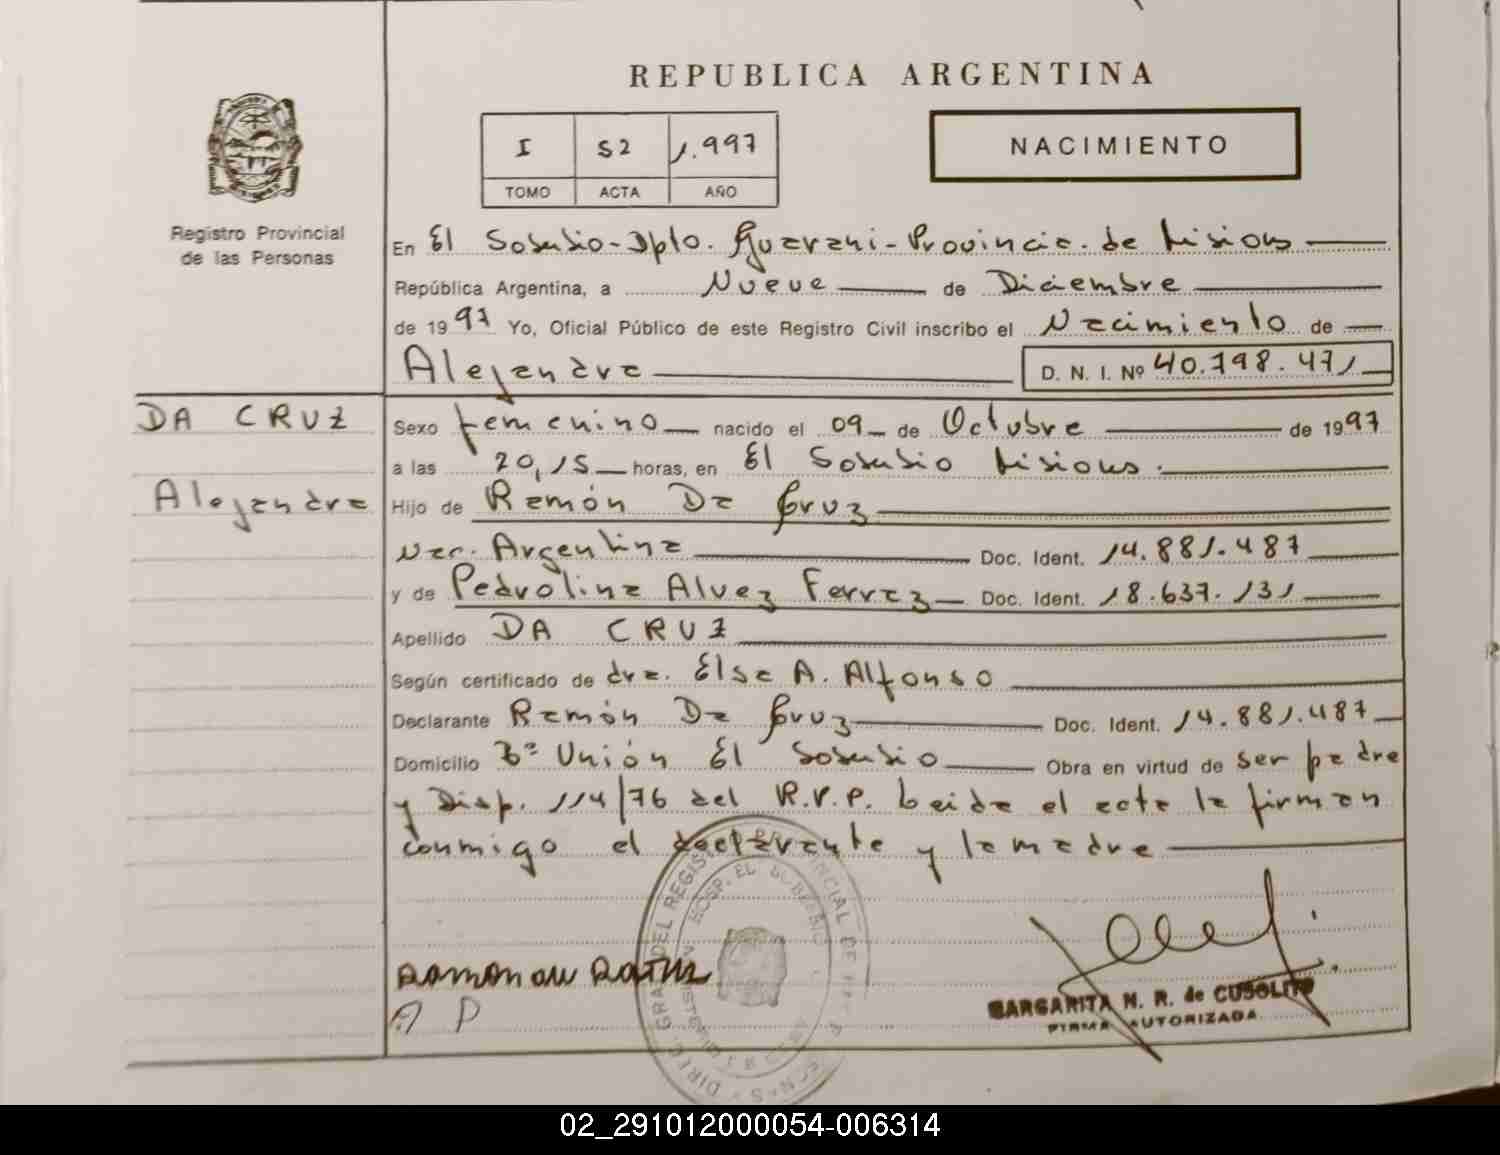 REPUBLICA ARGENTINA
I 52 1.997
TOMO ACTA AÑO
NACIMIENTO
Registro Provincial
de las Personas
En El Soberbio - Dpto. Guarani - Provincia de Misiones
República Argentina, a Nueve de Diciembre
de 1997 Yo, Oficial Público de este Registro Civil inscribo el Nacimiento de
Alejandra D. N. I. Nº 40.798.471
DA CRUZ
Alejandra
Sexo femenino nacido el 09 de Octubre de 1997
a las 20,15 horas, en El Soberbio Misiones.
Hijo de Ramón Da Cruz
Nac. Argentina Doc. Ident. 14.881.487
y de Pedrolina Alvez Ferraz Doc. Ident. 18.637.131
Apellido DA CRUZ
Según certificado de dra. Elsa A. Alfonso
Declarante Ramón Da Cruz Doc. Ident. 14.881.487
Domicilio Bº Unión El Soberbio Obra en virtud de ser padre
y Disp. 114/76 del R.P.P. Leida el acta la firman
conmigo el declarante y la madre
HOSP. EL SOBERBIO
A P
MARGARITA N. R. de CUSOLITO
FIRMA AUTORIZADA
02_291012000054-006314